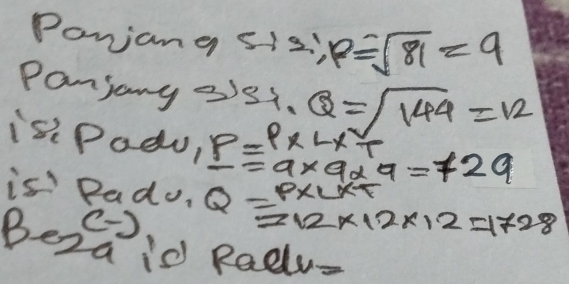 Panjang sisi, P = √81 = 9
Panjang sisi, Q = √144 = 12
isi Padu, P = P×L×T
= 9×9×9 = 729
isi Padu, Q = P×L×T
= 12×12×12 = 1728
(-)
Beza isi Padu =